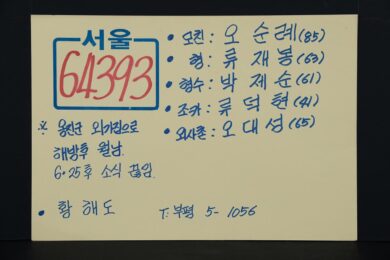 서울
64393
※ 옹진군 외가집으로
해방후 월남
6·25후 소식 끊임
• 황해도
• 모친: 오순례(85)
• 형: 류재봉(63)
• 형수: 박제순(61)
• 조카: 류덕현(41)
• 외사촌: 오대성(65)
T: 부평 5-1056